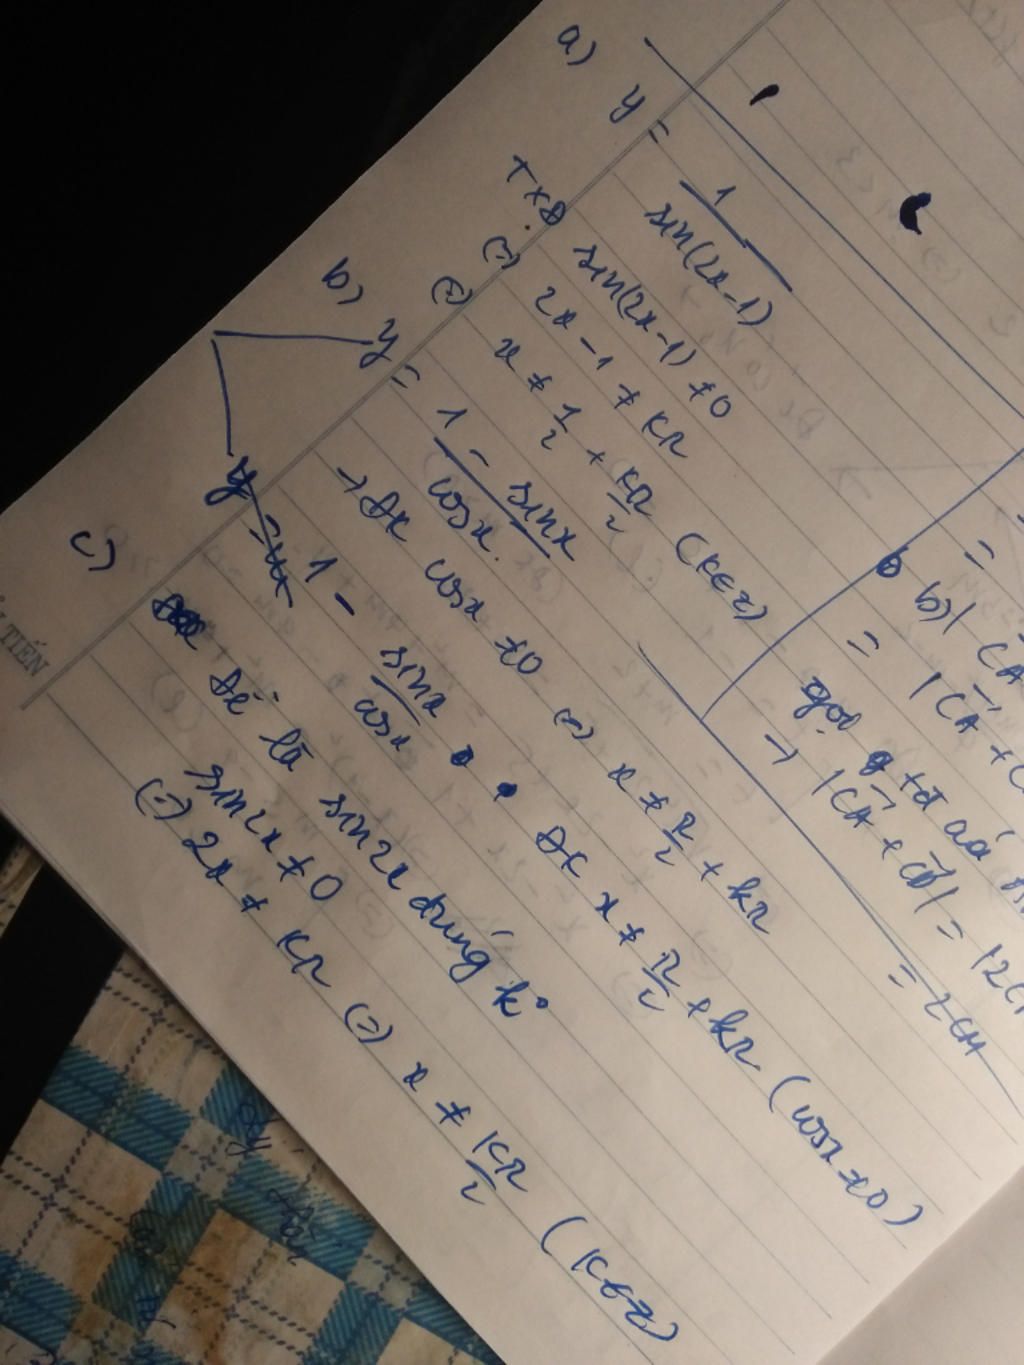 a) y = 1/sin(2x-1)
TXĐ sin(2x-1) ≠ 0
(=) 2x - 1 ≠ kπ
(=) x ≠ 1/2 + kπ/2 (k∈z)
b) y = 1 - sinx / cosx
→ ĐK cosx ≠ 0 (=) x ≠ π/2 + kπ
y = 1 - sinx/cosx . ĐK x ≠ π/2 + kπ (cosx ≠ 0)
c) Đề là sin2x đúng k°
sin2x ≠ 0
(=) 2x ≠ kπ (=) x ≠ kπ/2 (k∈z)
=
b) | CA
= | CA + C
gọi
→ | CA + CB | = | 2C
= 2CM
TIẾN